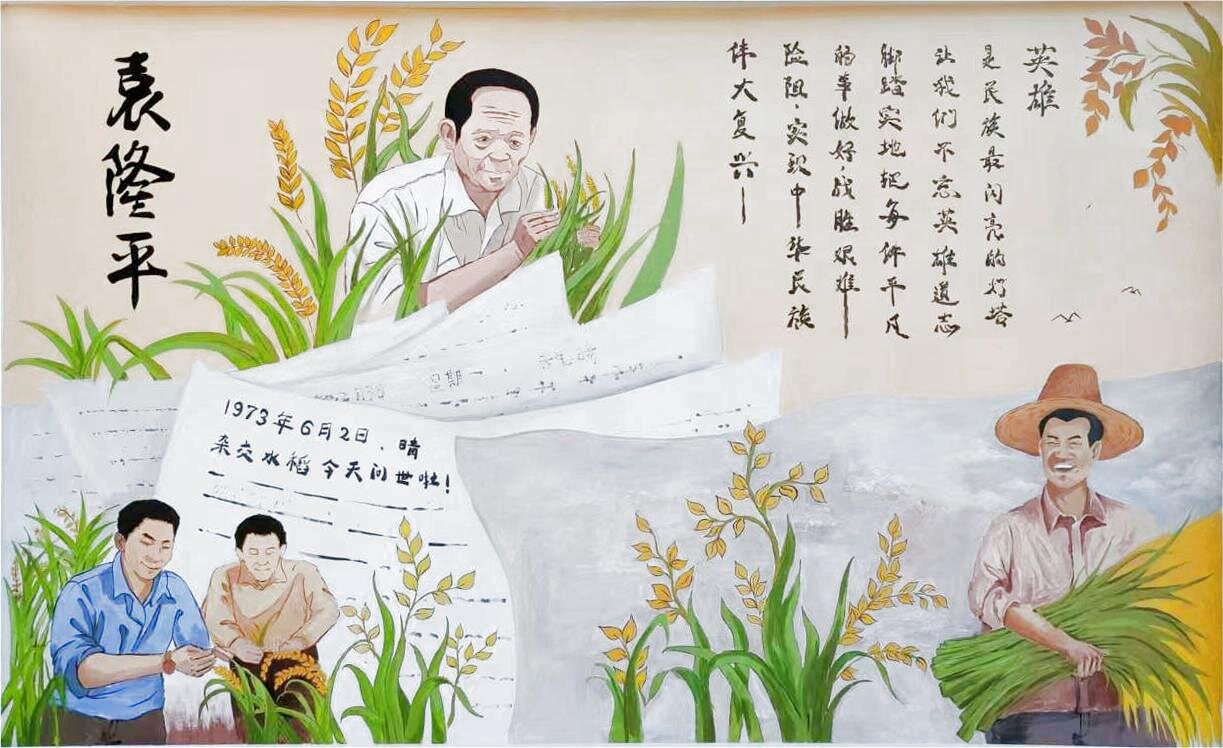 袁隆平
英雄
是民族最闪亮的灯塔
让我们不忘英雄遗志
脚踏实地把每件平凡
的事做好,战胜艰难
险阻,实现中华民族
伟大复兴
星期一,
1973年6月2日、晴
杂交水稻今天问世啦!